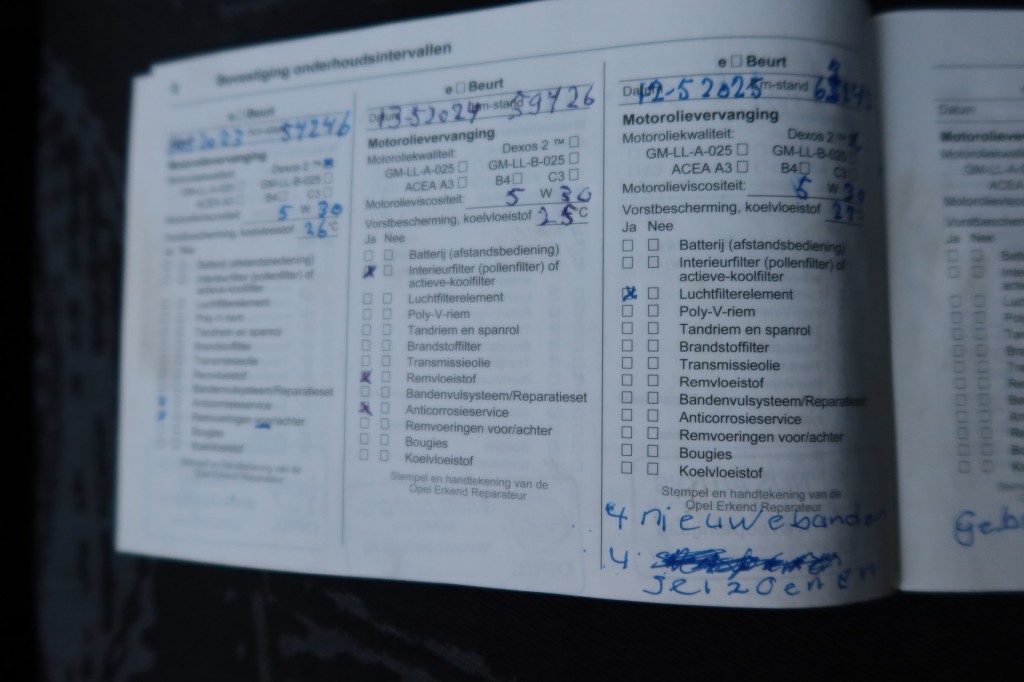 Bevestiging onderhoudsintervallen
e □ Beurt
2023 54246
Motorolievervanging
Dexos 2 ™
GM-LL-B-025 □
C3 □
Motorolieviscositeit: 5 W 30
Vorstbescherming, koelvloeistof 26 °C
Batterij (afstandsbediening)
Interieurfilter (pollenfilter) of
Luchtfilterelement
Poly-V-riem
Tandriem en spanrol
Brandstoffilter
Transmissieolie
Remvloeistof
Bandenvulsysteem/Reparatieset
Anticorrosieservice
Remvoeringen voor/achter
Bougies
Koelvloeistof
Stempel en handtekening van de
Opel Erkend Reparateur
e □ Beurt
Datum 13-5 2024 km-stand 59426
Motorolievervanging
Motoroliekwaliteit: Dexos 2 ™ □
GM-LL-A-025 □ GM-LL-B-025 □
ACEA A3 □ B4 □ C3 □
Motorolieviscositeit: 5 W 30
Vorstbescherming, koelvloeistof 25 °C
Ja Nee
□ □ Batterij (afstandsbediening)
☒ □ Interieurfilter (pollenfilter) of
actieve-koolfilter
□ □ Luchtfilterelement
□ □ Poly-V-riem
□ □ Tandriem en spanrol
□ □ Brandstoffilter
□ □ Transmissieolie
☒ □ Remvloeistof
□ □ Bandenvulsysteem/Reparatieset
☒ □ Anticorrosieservice
□ □ Remvoeringen voor/achter
□ □ Bougies
□ □ Koelvloeistof
Stempel en handtekening van de
Opel Erkend Reparateur
e □ Beurt
Datum 12-5 2025 km-stand
Motorolievervanging
Motoroliekwaliteit: Dexos 2 ™ ☒
GM-LL-A-025 □ GM-LL-B-025 □
ACEA A3 □ B4 □ C3 □
Motorolieviscositeit: 5 W 30
Vorstbescherming, koelvloeistof °C
Ja Nee
□ □ Batterij (afstandsbediening)
□ □ Interieurfilter (pollenfilter) of
actieve-koolfilter
☒ □ Luchtfilterelement
□ □ Poly-V-riem
□ □ Tandriem en spanrol
□ □ Brandstoffilter
□ □ Transmissieolie
□ □ Remvloeistof
□ □ Bandenvulsysteem/Reparatieset
□ □ Anticorrosieservice
□ □ Remvoeringen voor/achter
□ □ Bougies
□ □ Koelvloeistof
Stempel en handtekening van de
Opel Erkend Reparateur
4 nieuwe banden
4
Datum
Motorolievervanging
Ja Nee